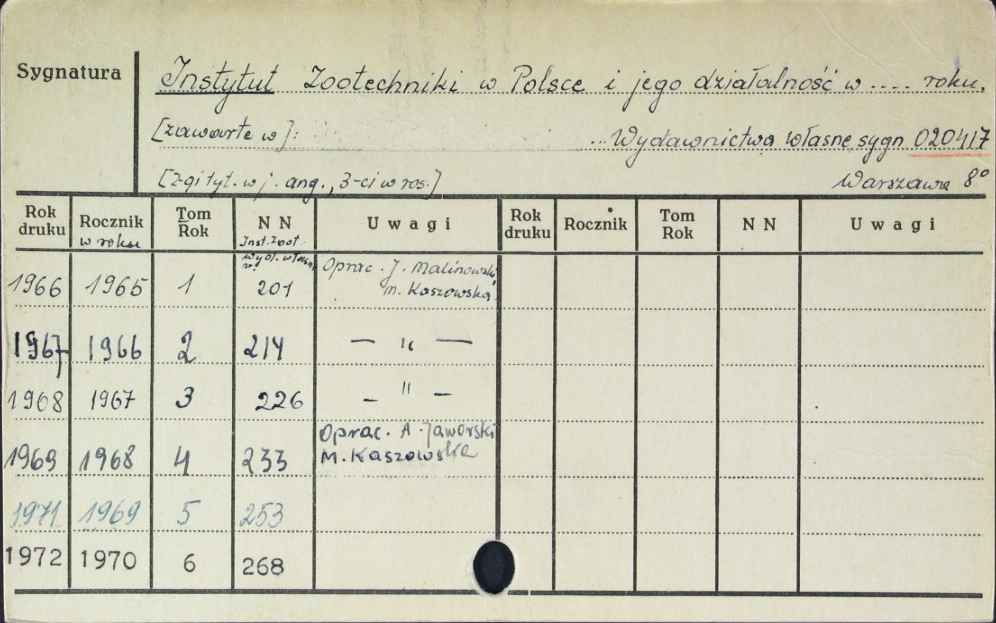 Sygnatura Instytut Zootechniki w Polsce i jego działalność w .... roku.
[zawarte w]: ... Wydawnictwa własne sygn 020417
[2-gi tyt. w j. ang., 3-ci w ros.] Warszawa 8°
Rok druku Rocznik w roku Tom Rok NN Inst. Zoot. Wyd. własne Uwagi Rok druku Rocznik Tom Rok NN Uwagi
1966 1965 1 201 Oprac. J. Malinowski M. Kaszowska
1967 1966 2 214 — " —
1968 1967 3 226 — " —
1969 1968 4 233 Oprac. A. Jaworski M. Kaszowska
1971 1969 5 253
1972 1970 6 268